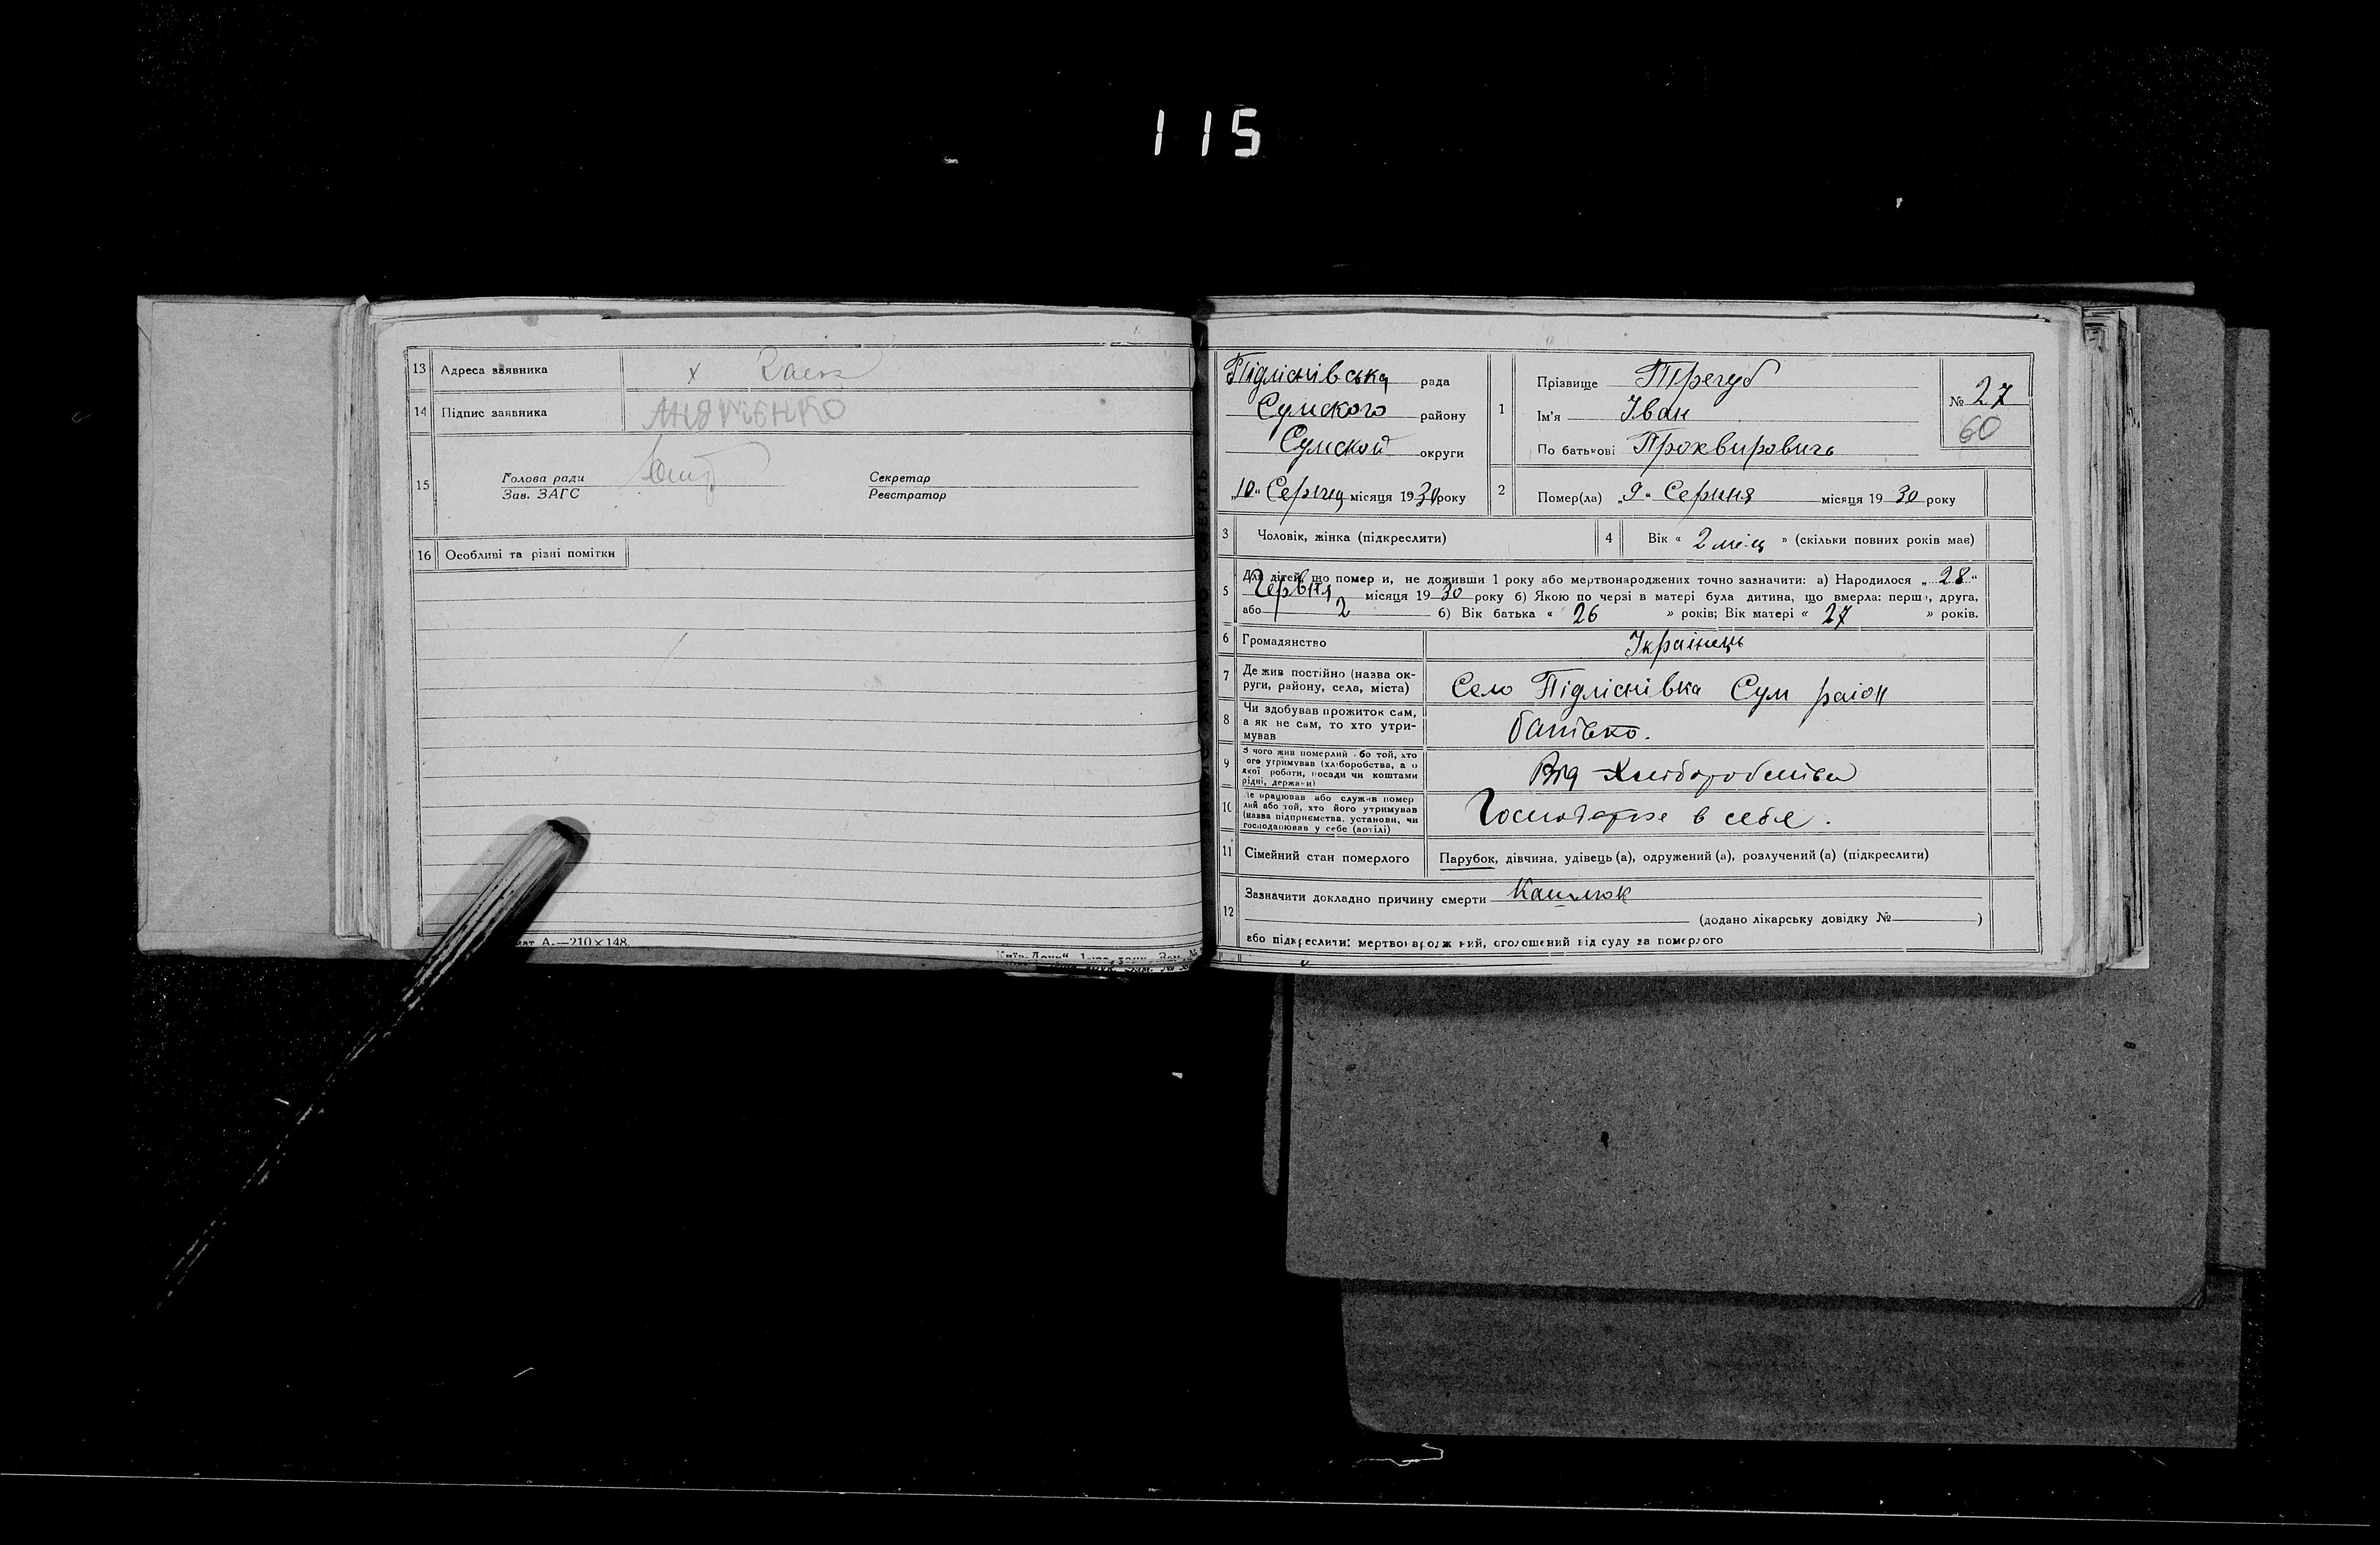 115
13 Адреса заявника х
14 Підпис заявника
15 Голова ради
Зав. ЗАГС
Секретар
Реєстратор
16 Особливі та різні помітки
Підліснівська рада
Сумского району
Сумской округи
„10" Серпня місяця 1930 року
1 Прізвище Прегуб
Ім'я Іван
По батькові Проквирович
№ 27
60
2 Помер(ла) „9" Серпня місяця 1930 року
3 Чоловік, жінка (підкреслити)
4 Вік « 2 міс » (скільки повних років має)
5 Для дітей, що помер и, не доживши 1 року або мертвонароджених точно зазначити: а) Народилося „28"
Червня місяця 1930 року б) Якою по черзі в матері була дитина, що вмерла: перша, друга,
або 2 б) Вік батька « 26 » років; Вік матері « 27 » років.
6 Громадянство Українець
7 Де жив постійно (назва ок-
руги, району, села, міста) Село Підліснівка Сум район
8 Чи здобував прожиток сам,
а як не сам, то хто утри-
мував батько.
9 З чого жив померлий або той, хто
ого утримував (хліборобства, а о
якої роботи, посади чи коштами
рідні, держави) Від Хліборобства
10 Де працював або служив помер
лий або той, хто його утримував
(назва підприємства, установи, чи
господарював у себе (артілі) Господарює в себе.
11 Сімейний стан померлого Парубок, дівчина, удівець (а), одружений (а), розлучений (а) (підкреслити)
12 Зазначити докладно причину смерти Кашлюк
(додано лікарську довідку № )
або підкреслити: мертвонароджений, оголошений від суду за померлого
мат А.—210×148.